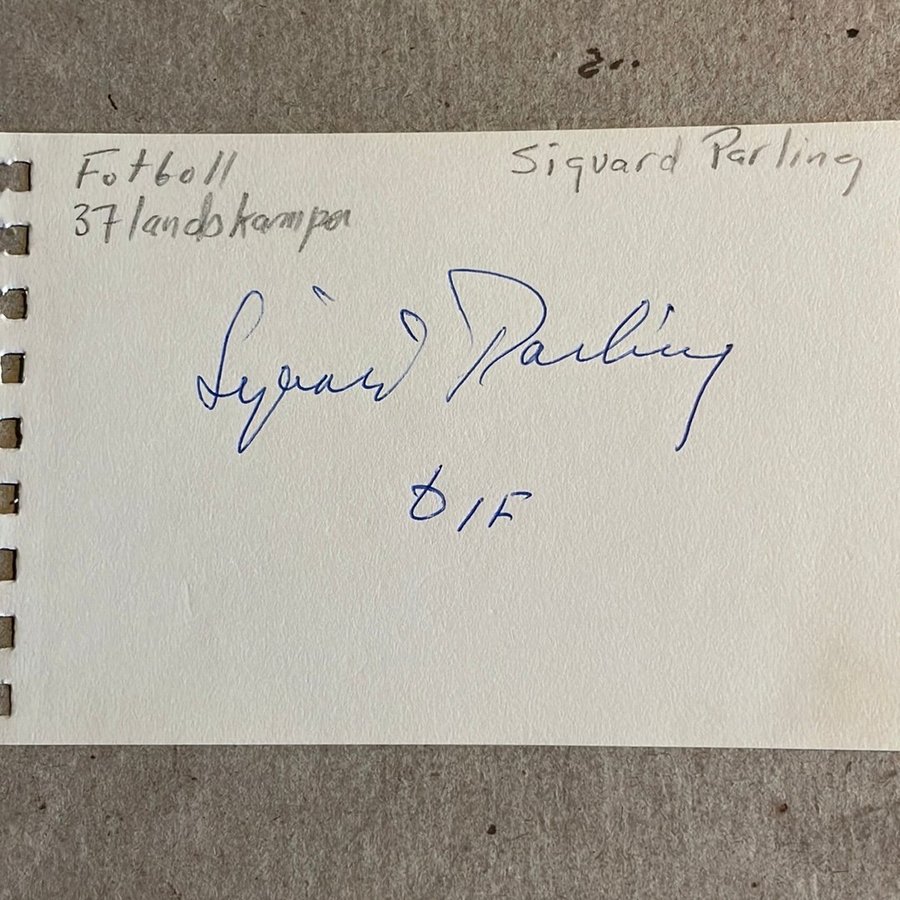 Fotboll
37 landskamper
Siqvard Parling
Sigvard Parling
DIF